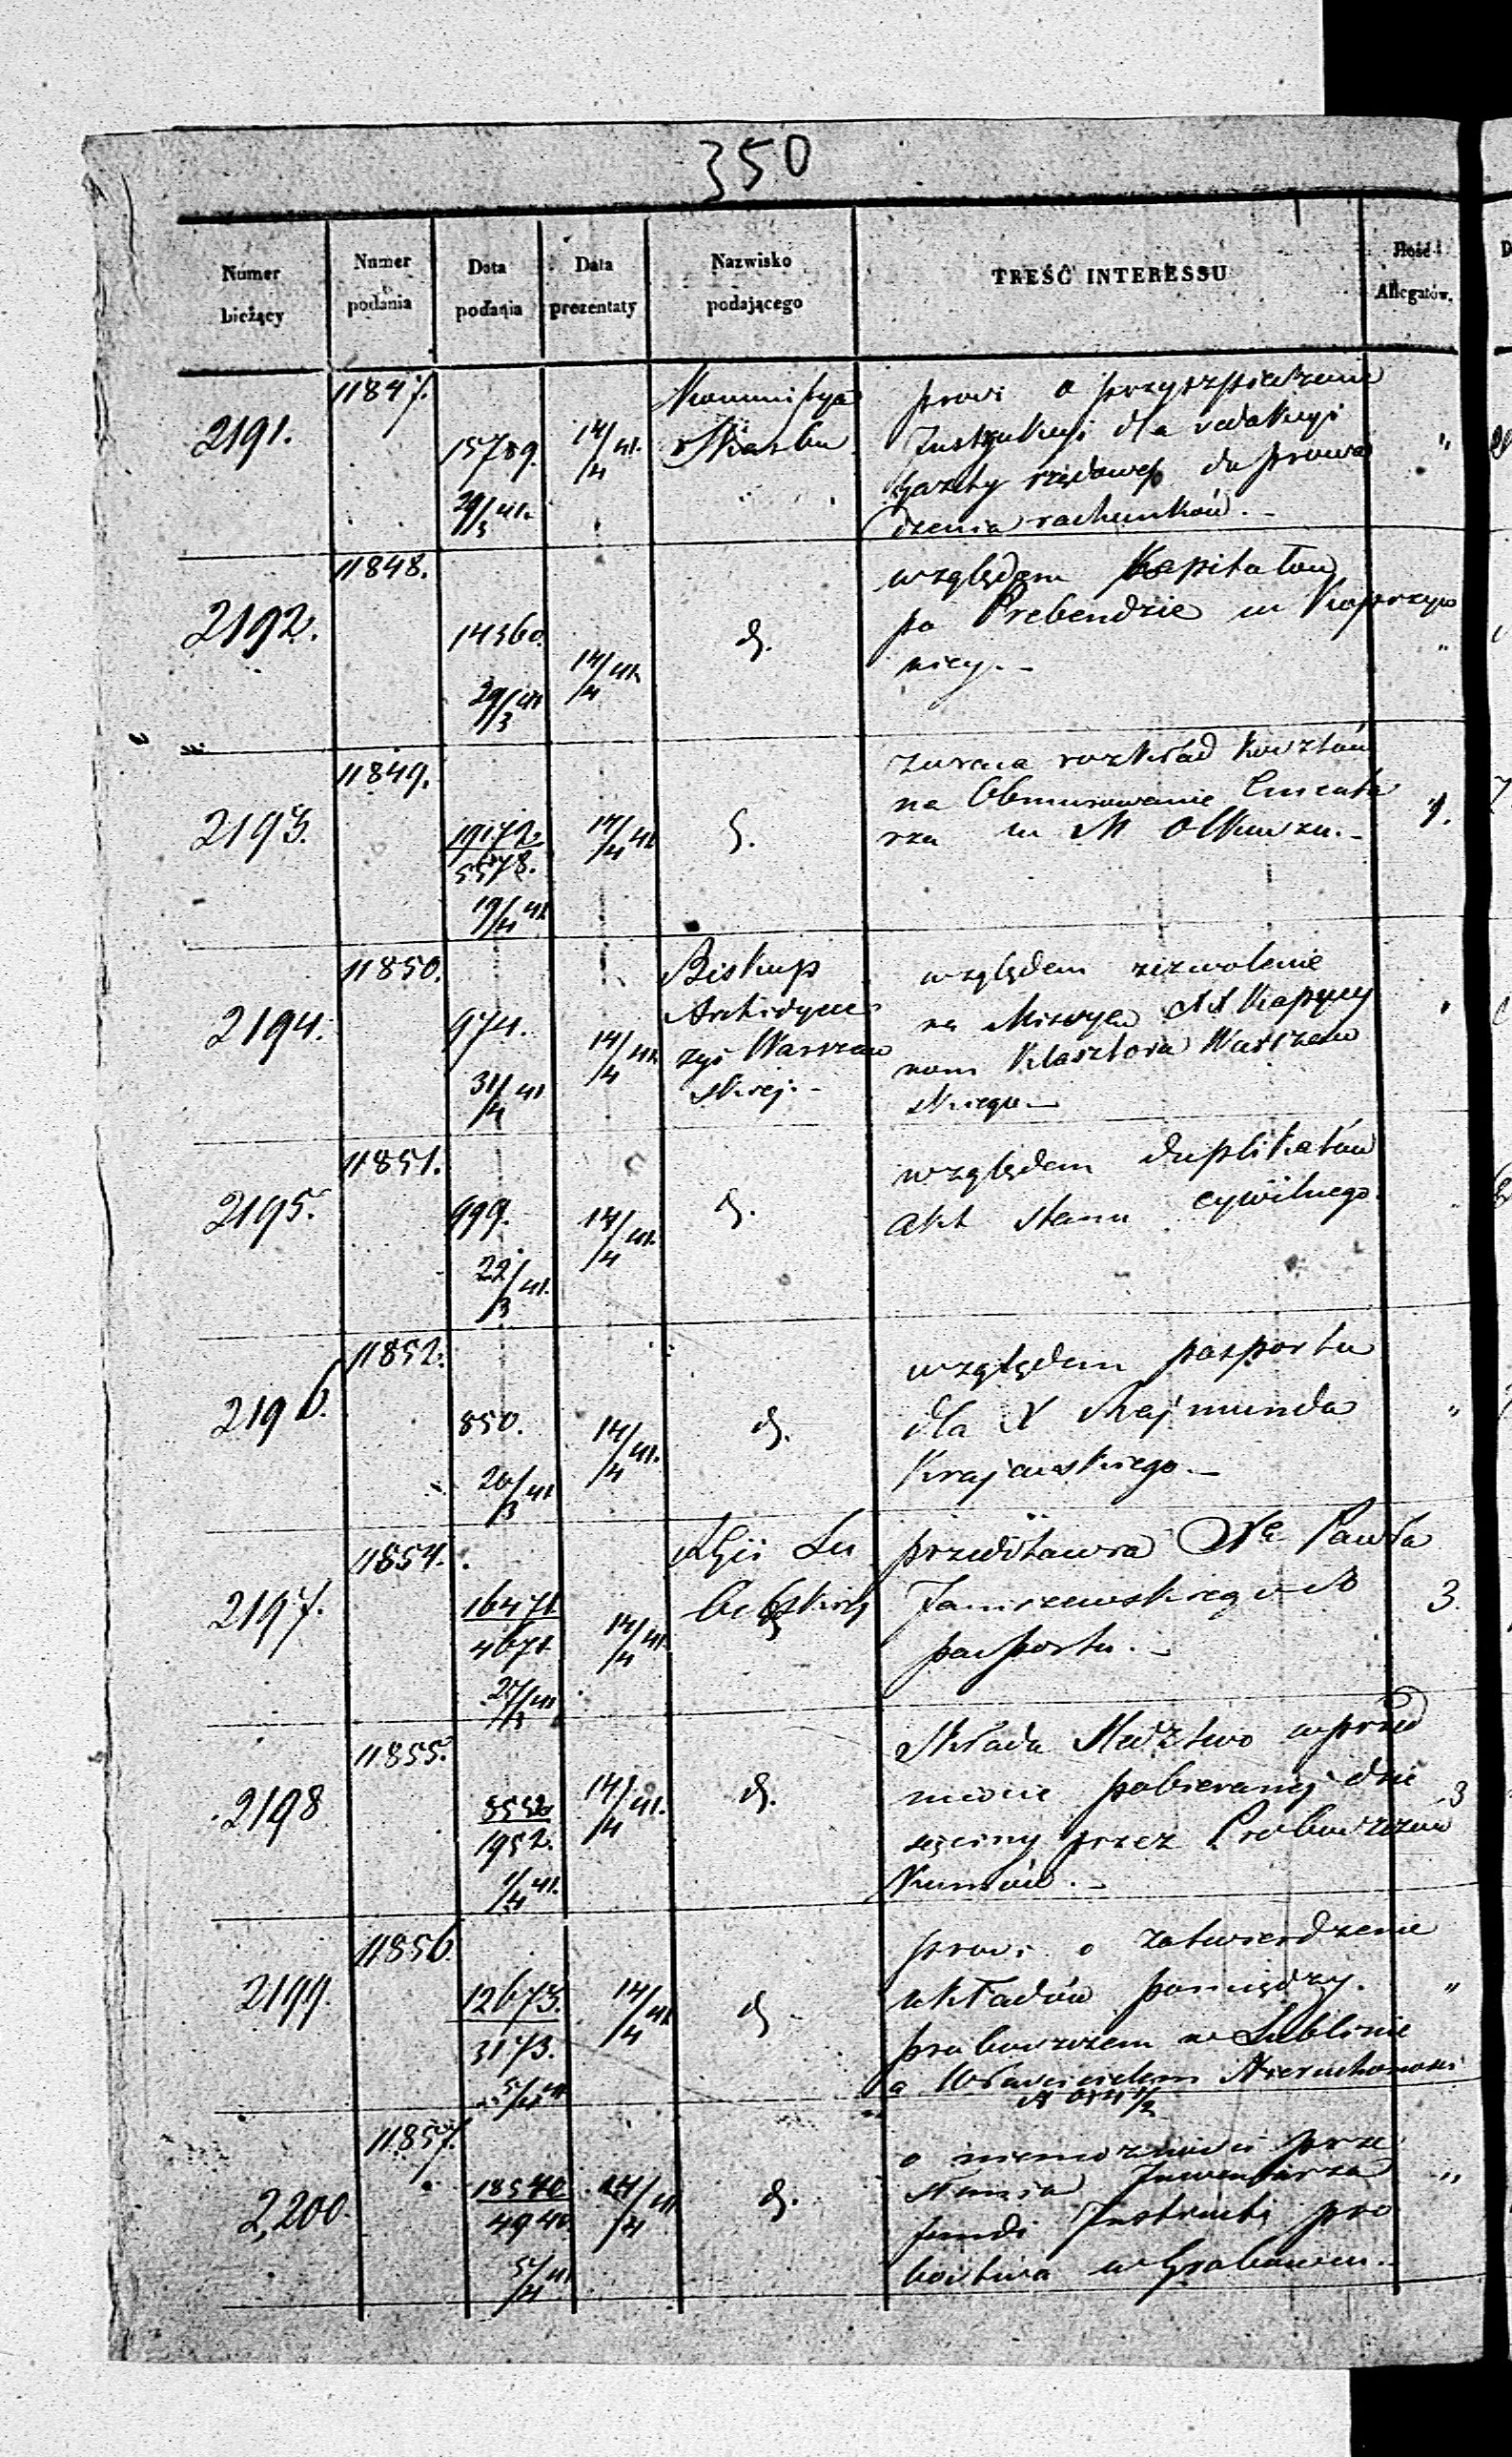 350
Numer bieżący
Numer podania
Data podania
Data prezentaty
Nazwisko podającego
TREŚĆ INTERESSU
Ilość Allegatów.
2191.
11847.
15789.
29/3 41.
14/4 41.
Kommissya
Skarbu
prosi o przyspieszenie
Instrukcyi dla redakcyi
Gazety rządowej do prowa
dzenia rachunków.
"
2192.
11848.
14360.
29/3 41
14/4 41.
d.
względem Kapitałów
po Prebendzie w Koprzyw
nicy.
"
2193.
11849.
19172.
5578.
19/4 41
14/4 41
d.
zwraca rozkład kosztów
na Obmurowanie Cmenta
rza w M Olkuszu.
1.
2194.
11850.
974.
31/4 41
14/4 41.
Biskup
Archidyece
zyi Warszaw
skiej.
względem zezwolenie
na Missye XX Kapucy
nom Klasztora Warszaw
skiego
2195.
11851.
999.
22/3 41.
14/4 41.
d.
względem duplikatów
akt stanu cywilnego.
2196.
11852.
850.
20/3 41
14/4 41.
d.
względem pasportu
dla X Rajmunda
Krajewskiego.
"
2197.
11854.
16471.
4671.
27/3 41
14/4 41.
Lu
belskiej
przedstawia Pawła
Janiszewskiego do
pasportu.
3.
2198
11855.
1952.
1/4 41.
14/4 41.
d.
Składa śledztwo w przed
miocie pobieranej dzie
sięciny przez Proboszczów
Kumów.
3
2199.
11856.
12673.
3173.
5/4 41
14/4 41
d.
prosi o zatwierdzenie
układów pomiędzy
proboszczem w Lublinie
a Właścicielem Nieruchomości
"
2,200.
11857.
18540
4940.
5/4 41
14/4 41
d.
o niemożności prze
słania Inwentarza
fundi Instructi pro
bostwa w Grabowcu.
"